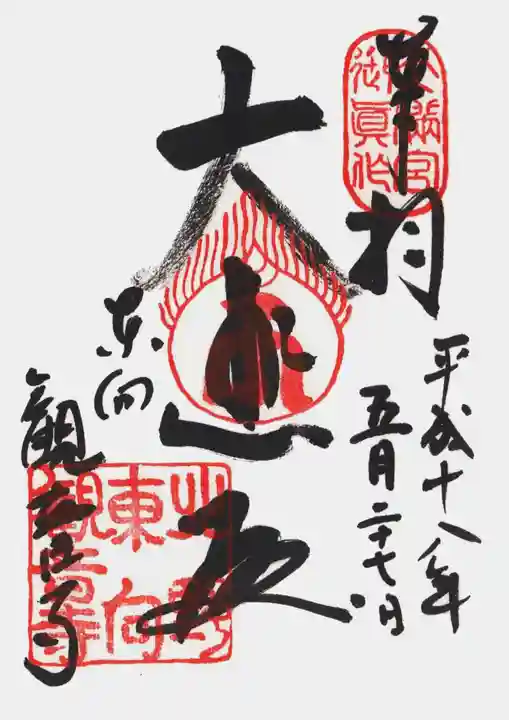 奉拝
天滿宮
御眞作
平成十八年
五月二十七日
大悲殿
東向
観音寺
北野
東向
觀音寺